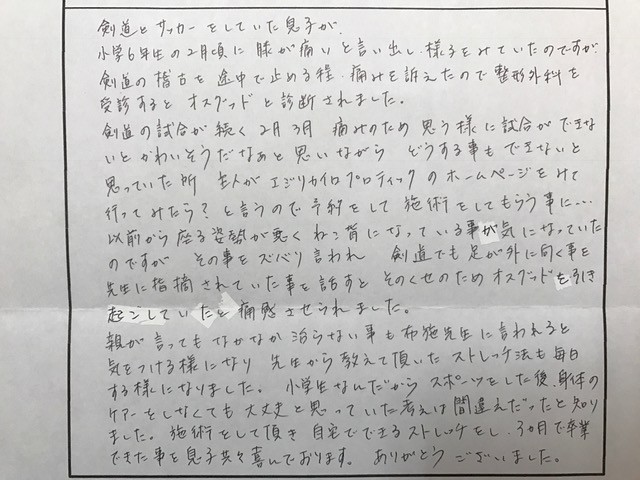 剣道とサッカーをしていた息子が、
小学6年生の2月頃に膝が痛いと言い出し、様子をみていたのですが、
剣道の稽古を途中で止める程、痛みを訴えたので整形外科を
受診するとオスグッドと診断されました。
剣道の試合が続く2月3月 痛みのため思う様に試合ができな
いとかわいそうだなぁと思いながら どうする事もできないと
思っていた所 主人がエジリカイロプロティックのホームページをみて
行ってみたら？と言うので予約をして施術をしてもらう事に…
以前から座る姿勢が悪くねこ背になっている事が気になっていた
のですが その事をズバリ言われ 剣道でも足が外に向く事を
先生に指摘されていた事を話すと そのくせのためオスグッドを引き
起こしていたと痛感させられました。
親が言ってもなかなか治らない事も布施先生に言われると
気をつける様になり 先生から教えて頂いたストレッチ法も毎日
する様になりました。 小学生なんだからスポーツをした後、身体の
ケアーをしなくても大丈夫と思っていた考えは間違えだったと知り
ました。施術をして頂き 自宅でできるストレッチをし、3ヶ月で卒業
できた事を息子共々喜んでおります。 ありがとうございました。